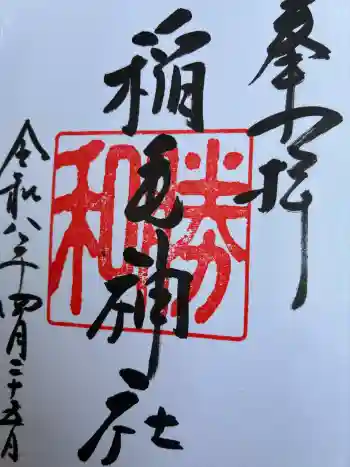 奉拝
稲毛神社
勝和
令和八年四月二十五日